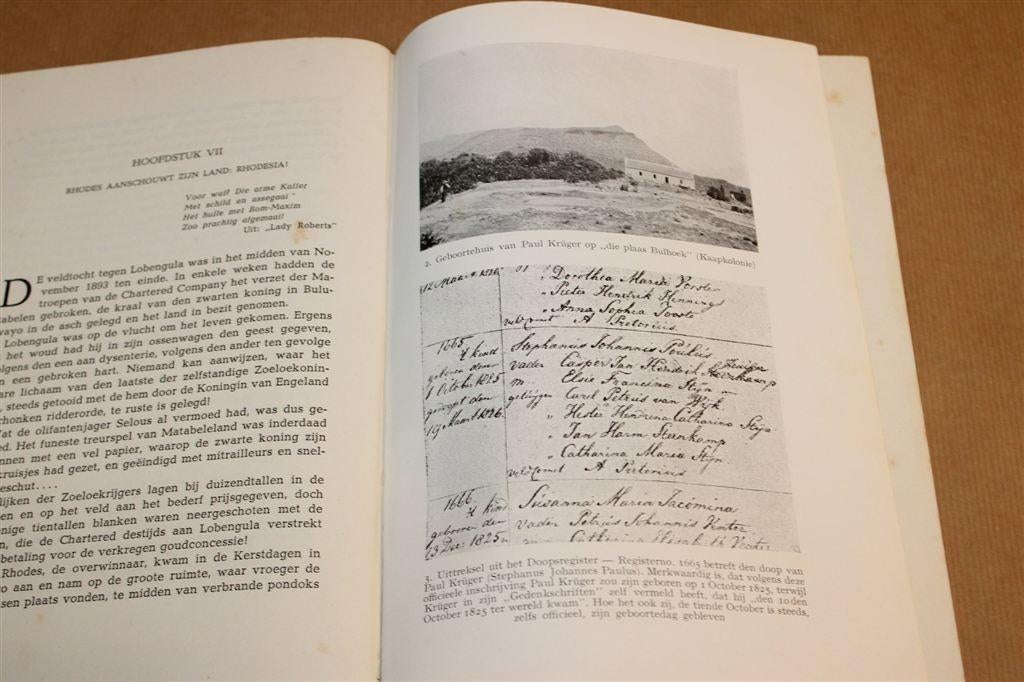 HOOFDSTUK VII
RHODES AANSCHOUWT ZIJN LAND: RHODESIA!
Voor wat? Die arme Kaffer
Met schild en assegaai
Het hulle met Bom-Maxim
Zoo prachtig algemaai!
Uit: „Lady Roberts"
DE veldtocht tegen Lobengula was in het midden van No-
vember 1893 ten einde. In enkele weken hadden de
troepen van de Chartered Company het verzet der Ma-
tabelen gebroken, de kraal van den zwarten koning in Bulu-
wayo in de asch gelegd en het land in bezit genomen.
Lobengula was op de vlucht om het leven gekomen. Ergens
het woud had hij in zijn ossenwagen den geest gegeven,
volgens den een aan dysenterie, volgens den ander ten gevolge
een gebroken hart. Niemand kan aanwijzen, waar het
lichaam van den laatste der zelfstandige Zoeloekonin-
steeds getooid met de hem door de Koningin van Engeland
schonken ridderorde, te ruste is gelegd!
at de olifantenjager Selous al vermoed had, was dus ge-
ed. Het funeste treurspel van Matabeleland was inderdaad
nnen met een vel papier, waarop de zwarte koning zijn
kruisjes had gezet, en geëindigd met mitrailleurs en snel-
geschut....
lijken der Zoeloekrijgers lagen bij duizendtallen in de
en en op het veld aan het bederf prijsgegeven, doch
enige tientallen blanken waren neergeschoten met de
n, die de Chartered destijds aan Lobengula verstrekt
betaling voor de verkregen goudconcessie!
Rhodes, de overwinnaar, kwam in de Kerstdagen in
o aan en nam op de groote ruimte, waar vroeger de
sen plaats vonden, te midden van verbrande pondoks
2. Geboortehuis van Paul Krüger op „die plaas Bulhoek" (Kaapkolonie)
12 Maart 1826
„ Dorothea Maria Vorster
„ Pieter Hendrik Hennings
„ Anna Sophia Joosts
veldcornet A Pretorius.
1665 Stephanus Johannis Paulus
't kind vader Casper Jan Hendrik Kruger
geboren den m.. Elsie Francina Stijn
1 October 1825 getuijgen Carel Petrus van Wijk
gedoopt den „ Hester Hendrina Catharina Stijn
19 Maart 1826. „ Jan Harm Steenkamp
„ Catharina Maria Stijn.
veldcornet A Pretorius
1666 Susanna Maria Jacomina
't kind vader Petrus Johannis Venter
geboren den
13 Dec: 1825
3. Uittreksel uit het Doopsregister — Registerno. 1665 betreft den doop van
Paul Krüger (Stephanus Johannes Paulus). Merkwaardig is, dat volgens deze
officieele inschrijving Paul Krüger zou zijn geboren op 1 October 1825, terwijl
Krüger in zijn „Gedenkschriften" zelf vermeld heeft, dat hij „den 10den
October 1825 ter wereld kwam". Hoe het ook zij, de tiende October is steeds,
zelfs officieel, zijn geboortedag gebleven